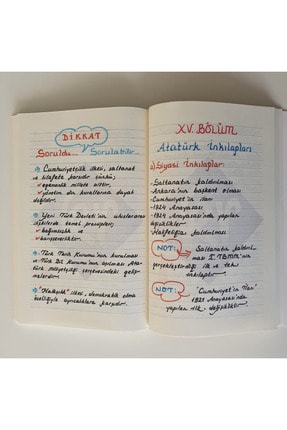 DİKKAT
Soruldu... Sorulabilir...
Cumhuriyetçilik ilkesi, saltanat
hilafete karşıdır çünkü;
✓ egemenlik millete aittir,
✓ yönetim de kurallarına dayalı
değildir.
Yeni Türk Devleti'nin uluslararası
ilkelerde temel prensipleri;
✓ bağımsızlık ve
✓ barışseverliktir.
Türk Tarih Kurumu'nun kurulması
ve Türk Dil Kurumu'nun açılması Ata-
türk milliyetçiliği çerçevesindeki geliş-
"Halkçılık" ilkesi, demokratik olma
özelliğiyle ayrıcalıklara karşıdır.
XV. BÖLÜM
Atatürk İnkılapları
a) Siyasi İnkılaplar:
-Saltanatın kaldırılması
-Ankara'nın başkent olması
-Cumhuriyet'in ilanı
-1924 Anayasası
-1924 Anayasası'nda yapılan
değişiklikler
-Halifeliğin kaldırılması
NOT: Saltanatın kaldırıl-
ması I. TBMM'nin
gerçekleştirdiği ilk ve tek
inkılaptır.
NOT: "Cumhuriyet'in ilanı"
1921 Anayasası'nda
yapılan ilk değişikliktir.